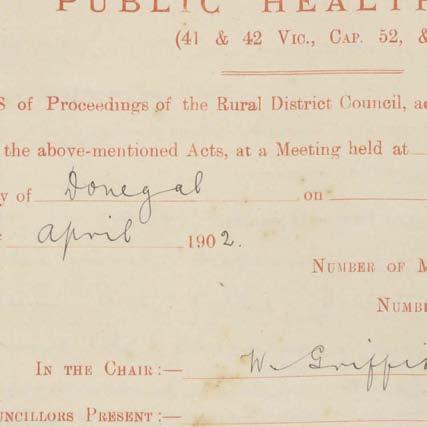 PUBLIC HEALTH
(41 & 42 Vic., Cap. 52, &
S of Proceedings of the Rural District Council, ac
the above-mentioned Acts, at a Meeting held at
y of Donegal on
April 1902.
Number of M
Numbe
In the Chair:— W. Griffit
uncillors Present:—